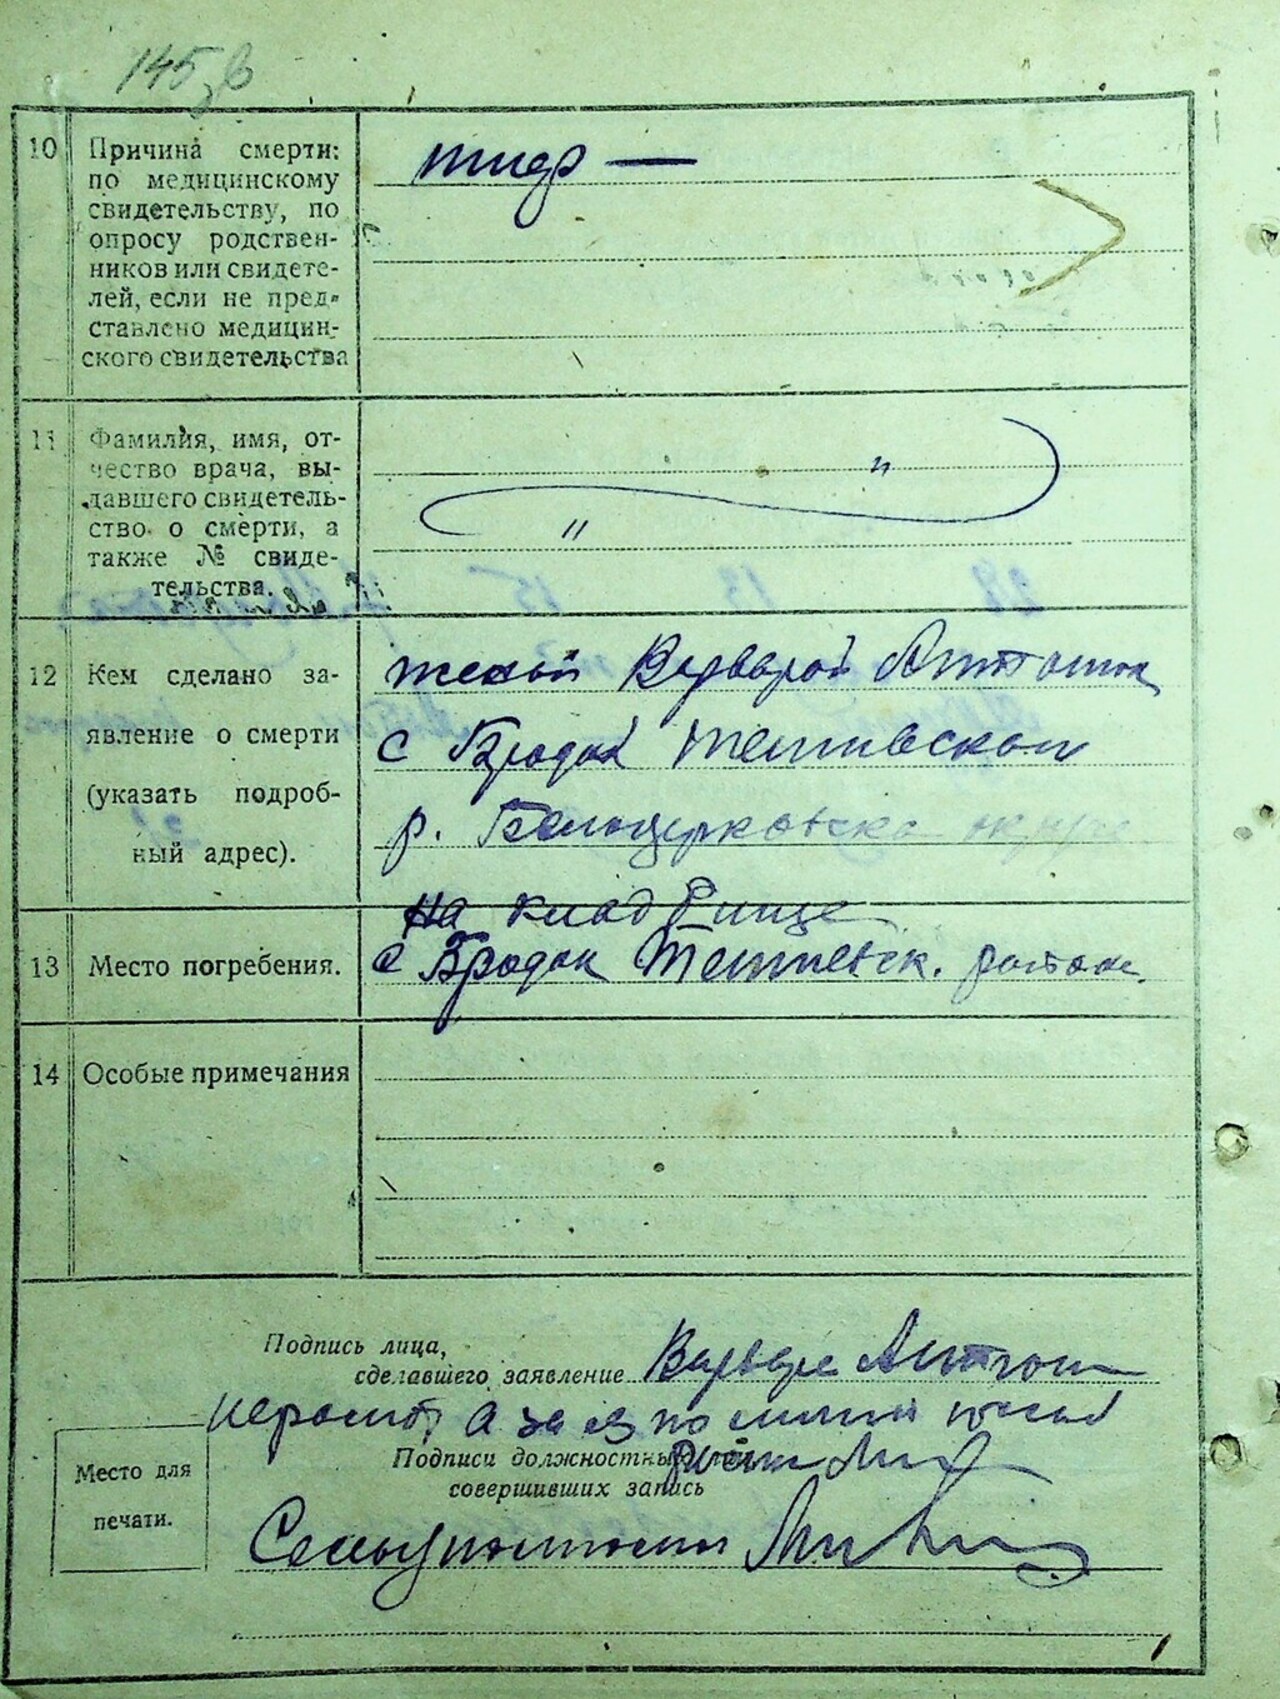 145 зв
10 Причина смерти:
по медицинскому
свидетельству, по
опросу родствен-
ников или свидете-
лей, если не пред-
ставлено медицин-
ского свидетельства
тиф —
11 Фамилия, имя, от-
чество врача, вы-
давшего свидетель-
ство о смерти, а
также № свиде-
тельства.
"
"
12 Кем сделано за-
явление о смерти
(указать подроб-
ный адрес).
женой Варварой
с Бродок Тетиевского
р. Белоцерковско округа
13 Место погребения.
на кладбище
с Бродок Тетиевск. района
14 Особые примечания
Подпись лица,
сделавшего заявление Варвара
неграмот, а за ея по личной
Подписи должностных лиц,
совершивших запись
Место для
печати.
Сельуполномоч